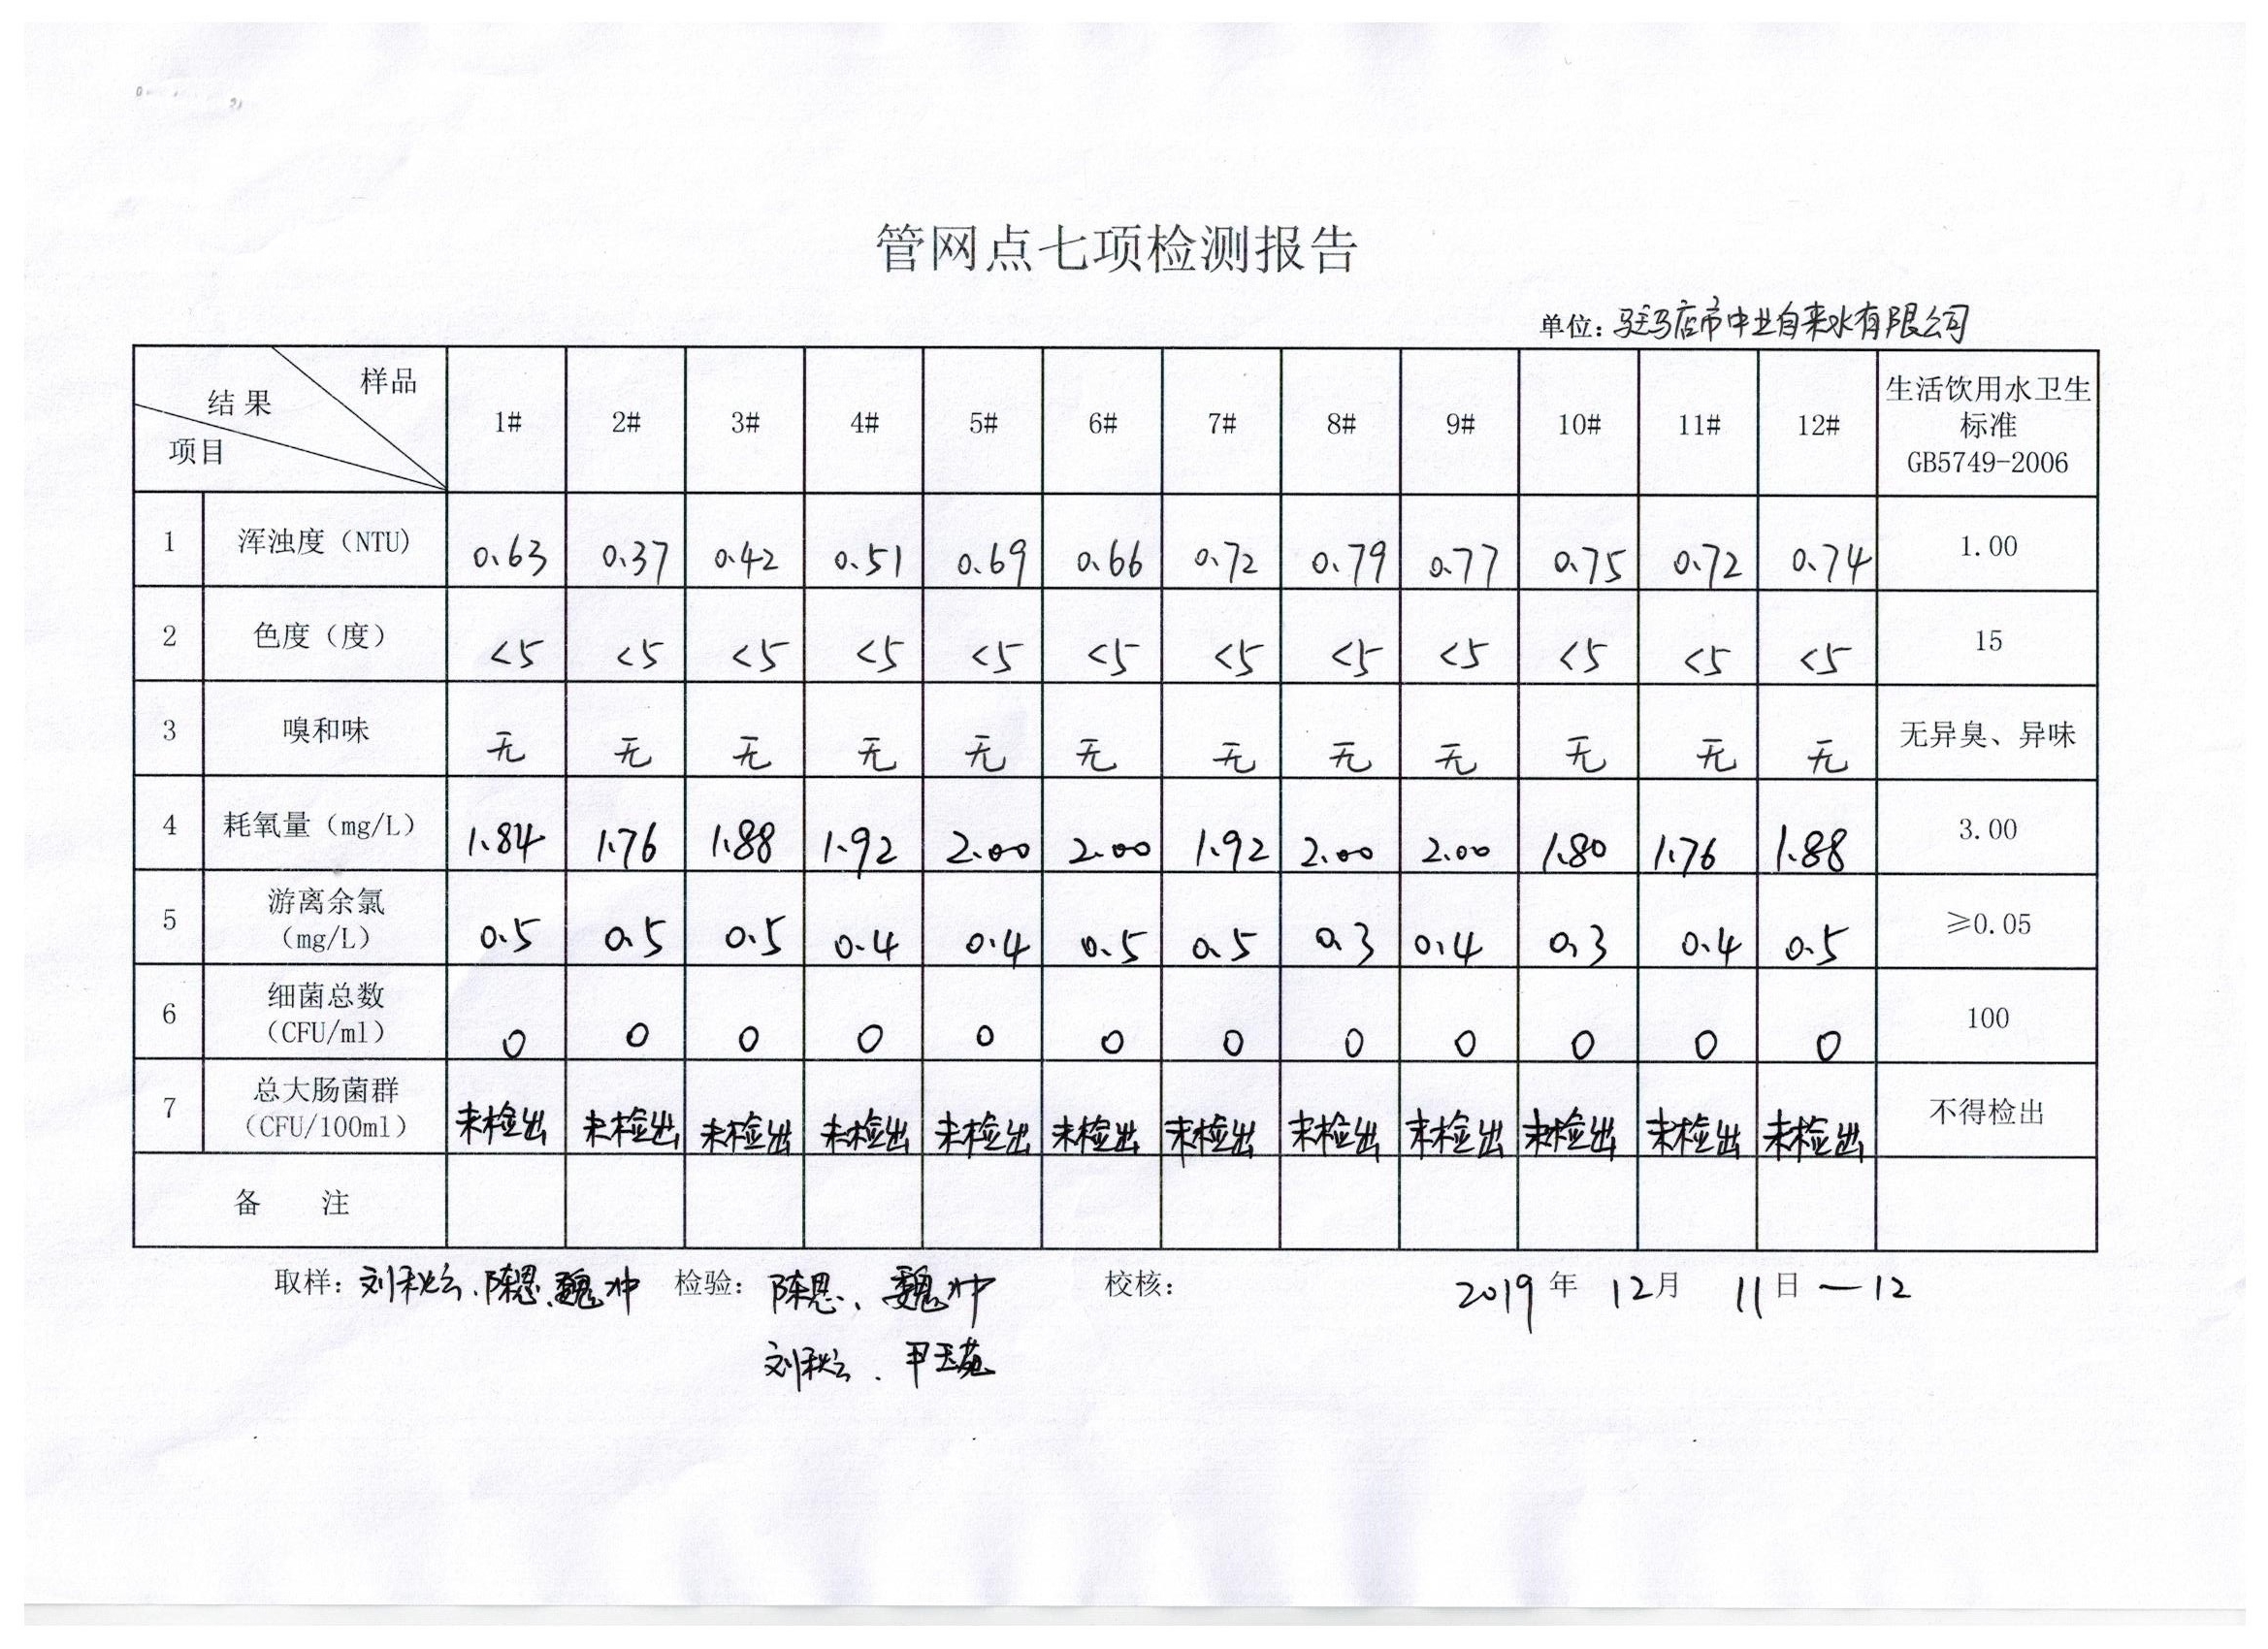 管网点七项检测报告
单位: 驻马店市中业自来水有限公司
结果 样品 项目 1# 2# 3# 4# 5# 6# 7# 8# 9# 10# 11# 12# 生活饮用水卫生标准 GB5749-2006
1 浑浊度（NTU) 0.63 0.37 0.42 0.51 0.69 0.66 0.72 0.79 0.77 0.75 0.72 0.74 1.00
2 色度（度） <5 <5 <5 <5 <5 <5 <5 <5 <5 <5 <5 <5 15
3 嗅和味 无 无 无 无 无 无 无 无 无 无 无 无 无异臭、异味
4 耗氧量（mg/L） 1.84 1.76 1.88 1.92 2.00 2.00 1.92 2.00 2.00 1.80 1.76 1.88 3.00
5 游离余氯（mg/L） 0.5 0.5 0.5 0.4 0.4 0.5 0.5 0.3 0.4 0.3 0.4 0.5 ≥0.05
6 细菌总数（CFU/ml） 0 0 0 0 0 0 0 0 0 0 0 0 100
7 总大肠菌群（CFU/100ml） 未检出 未检出 未检出 未检出 未检出 未检出 未检出 未检出 未检出 未检出 未检出 未检出 不得检出
备 注
取样: 刘秋云、陈恩、魏冲 检验: 陈恩、魏冲 校核: 2019 年 12月 11日—12
刘秋云、尹玉苑